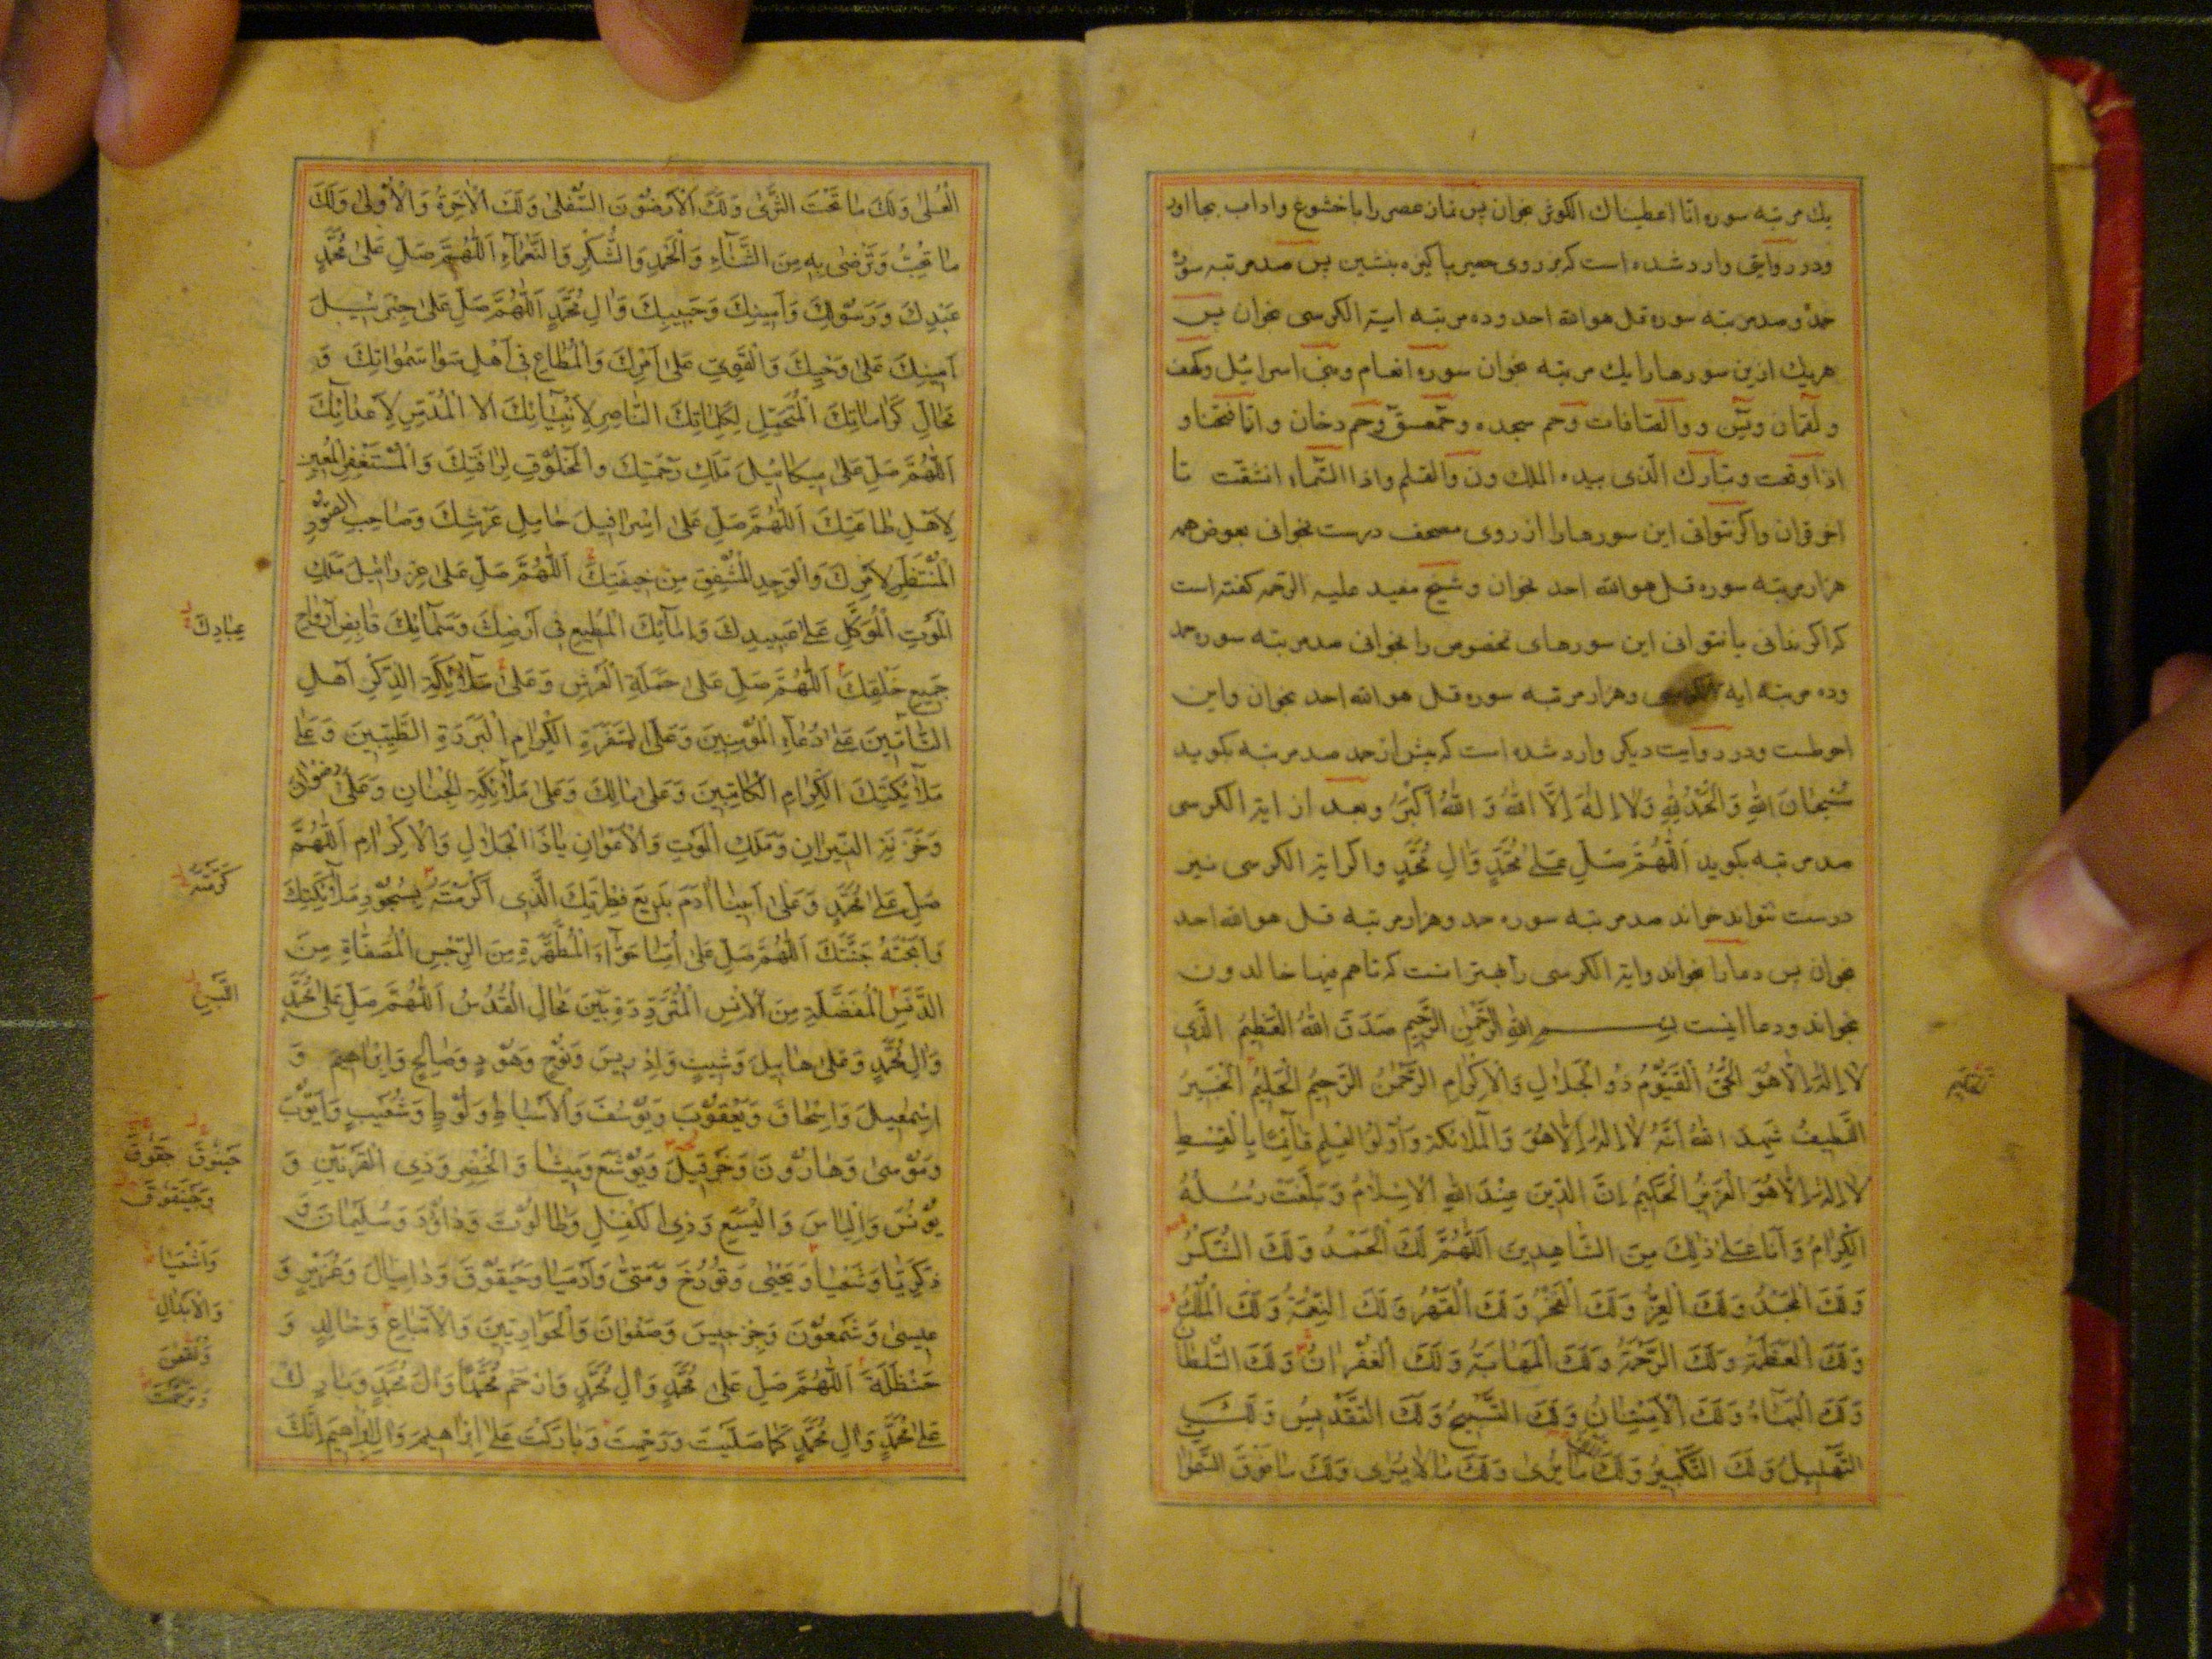 يك مرتبه سوره انا اعطيناك الكوثر بخوان پس نماز عصر را باخشوع واداب بجا اور
ودر روايتى وارد شده است كه بر روى حصير پاكيزه بنشين پس صد مرتبه سوره
حمد و صد مرتبه سوره قل هو الله احد و ده مرتبه اية الكرسى بخوان پس
هريك ازين سورها را يك مرتبه بخوان سوره انعام وبنى اسرائيل وكهف
ولقمان ويٰسٓ ووالصّافات وحم سجده وحمٓعسق وحم دخان وانّا فتحنا و
اذا وقعت وتبارك الّذى بيده الملك ون والقلم واذا السّماء انشقّت تا
اخر قران واكر نتوانى اين سورها را از روى مصحف درست بخوانى بعوض همه
هزار مرتبه سوره قل هو الله احد بخوان و شيخ مفيد عليه الرّحمه كفته است
كه اكر ندانى يا نتوانى اين سورهاى مخصوص را بخوانى صد مرتبه سوره حمد
وده مرتبه ايه الكرسى وهزار مرتبه سوره قل هو الله احد بخوان واين
احوطست ودر روايت ديكر وارد شده است كه پيش از حمد صد مرتبه بكويد
سُبْحٰانَ اللهِ وَالْحَمْدُ لِلهِ وَلاٰ اِلٰهَ اِلَّا اللهُ وَ اللهُ اَكْبَرُ وبعد از اية الكرسى
صد مرتبه بكويد اَللّٰهُمَّ صَلِّ عَلىٰ مُحَمَّدٍ وَاٰلِ مُحَمَّدٍ واكر اية الكرسى نيز
درست نتواند خواند صد مرتبه سوره حمد وهزار مرتبه قل هو الله احد
بخوان پس دعا را بخواند واية الكرسى را بهتر انست كه تا هم فيها خالدون
بخواند ودعا اينست بِسْمِ اللهِ الرَّحْمٰنِ الرَّحِيمِ صَدَقَ اللهُ الْعَظِيمُ الَّذِى
لاٰ اِلٰهَ اِلاّٰ هُوَ الْحَىُّ الْقَيُّوْمُ ذُو الْجَلاٰلِ وَالْاِكْرٰامِ الرَّحْمٰنُ الرَّحِيمُ الْحَلِيمُ الْخَبِيرُ
اللَّطِيفُ شَهِدَ اللهُ اَنَّهُ لاٰ اِلٰهَ اِلاّٰ هُوَ وَالْمَلاٰئِكَةُ وَاُولُوا الْعِلْمِ قٰائِمًا بِالْقِسْطِ
لاٰ اِلٰهَ اِلاّٰ هُوَ الْعَزِيزُ الْحَكِيمُ اِنَّ الدّينَ عِنْدَ اللهِ الْاِسْلاٰمُ وَبَلَّغَتْ رُسُلُهُ
الْكِرٰامُ وَاَنَا عَلىٰ ذٰلِكَ مِنَ الشّٰاهِدِينَ اَللّٰهُمَّ لَكَ الْحَمْدُ وَلَكَ الشُّكْرُ
وَلَكَ الْمَجْدُ وَلَكَ الْعِزُّ وَلَكَ الْفَخْرُ وَلَكَ الْقَهْرُ وَلَكَ النِّعْمَةُ وَلَكَ الْمُلْكُ
وَلَكَ الْعَظَمَةُ وَلَكَ الرَّحْمَةُ وَلَكَ الْمَهٰابَةُ وَلَكَ الْغُفْرٰانُ وَلَكَ السُّلْطٰانُ
وَلَكَ الْبَهٰاءُ وَلَكَ الْاِمْتِنٰانُ وَلَكَ التَّسْبِيحُ وَلَكَ التَّقْدِيسُ وَلَكَ
التَّهْلِيلُ وَلَكَ التَّكْبِيرُ وَلَكَ مٰا يُرىٰ وَلَكَ مٰا لاٰ يُرىٰ وَلَكَ مٰا فَوْقَ السَّمٰوٰاتِ
الْعُلىٰ وَلَكَ مٰا تَحْتَ الثَّرىٰ وَلَكَ الْاَرَضُوْنَ السُّفْلىٰ وَلَكَ الْاٰخِرَةُ وَالْاُوْلىٰ وَلَكَ
مٰا تُحِبُّ وَتَرْضىٰ بِهِ مِنَ الثَّنٰاءِ وَالْحَمْدِ وَالشُّكْرِ وَالنَّعْمٰاءِ اَللّٰهُمَّ صَلِّ عَلىٰ مُحَمَّدٍ
عَبْدِكَ وَرَسُوْلِكَ وَاَمِينِكَ وَحَبِيبِكَ وَاٰلِ مُحَمَّدٍ اَللّٰهُمَّ صَلِّ عَلىٰ جِبْرَئِيلَ
اَمِينِكَ عَلىٰ وَحْيِكَ وَالْقَوِىِّ عَلىٰ اَمْرِكَ وَالْمُطٰاعِ فِى اَهْلِ سَمٰوٰاتِكَ وَ
مَحٰالِّ كَرٰامٰاتِكَ الْمُتَحَمِّلِ لِكَلِمٰاتِكَ النّٰاصِرِ لِاَنْبِيٰائِكَ الْمُدَمِّرِ لِاَعْدٰائِكَ
اَللّٰهُمَّ صَلِّ عَلىٰ مِيكٰائِيلَ مَلَكِ رَحْمَتِكَ وَالْمَخْلُوْقِ لِرَاْفَتِكَ وَالْمُسْتَغْفِرِ الْمُعِينِ
لِاَهْلِ طٰاعَتِكَ اَللّٰهُمَّ صَلِّ عَلىٰ اِسْرٰافِيلَ حٰامِلِ عَرْشِكَ وَصٰاحِبِ الصُّوْرِ
الْمُنْتَظِرِ لِاَمْرِكَ وَالْوَجِلِ الْمُشْفِقِ مِنْ خِيفَتِكَ اَللّٰهُمَّ صَلِّ عَلىٰ عِزْرٰائِيلَ مَلَكِ
الْمَوْتِ الْمُوَكَّلِ عَلىٰ عَبِيدِكَ وَاِمٰائِكَ الْمُطِيعِ فِى اَرْضِكَ وَسَمٰائِكَ قٰابِضِ اَرْوٰاحِ
عِبٰادِكَ
جَمِيعِ خَلْقِكَ اَللّٰهُمَّ صَلِّ عَلىٰ حَمَلَةِ الْعَرْشِ وَعَلىٰ مَلاٰئِكَةِ الذِّكْرِ اَهْلِ
التّٰامِينَ عَلىٰ دُعٰاءِ الْمُؤْمِنِينَ وَعَلَى السَّفَرَةِ الْكِرٰامِ الْبَرَرَةِ الطَّيِّبِينَ وَعَلىٰ
مَلاٰئِكَتِكَ الْكِرٰامِ الْكٰاتِبِينَ وَعَلىٰ مٰالِكَ وَعَلىٰ مَلاٰئِكَةِ الْجِنٰانِ وَعَلىٰ رِضْوٰانَ
وَخَزَنَةِ النّيرٰانِ وَمَلَكِ الْمَوْتِ وَالْاَعْوٰانِ يٰا ذَا الْجَلاٰلِ وَالْاِكْرٰامِ اَللّٰهُمَّ
كَرَّمْتَهُ
صَلِّ عَلىٰ مُحَمَّدٍ وَعَلىٰ اَبِينٰا اٰدَمَ بَدِيعِ فِطْرَتِكَ الَّذِى اَكْرَمْتَهُ بِسُجُوْدِ مَلاٰئِكَتِكَ
وَاَبَحْتَهُ جَنَّتَكَ اَللّٰهُمَّ صَلِّ عَلىٰ اُمِّنٰا حَوّٰاءَ الْمُطَهَّرَةِ مِنَ الرِّجْسِ الْمُصَفّٰاةِ مِنَ
الدَّنَسِ الْمُفَضَّلَةِ مِنَ الْاِنْسِ الْمُتَرَدِّدَةِ بَيْنَ مَحٰالِّ الْقُدُسِ اَللّٰهُمَّ صَلِّ عَلىٰ مُحَمَّدٍ
وَاٰلِ مُحَمَّدٍ وَعَلىٰ هٰابِيلَ وَشِيثٍ وَاِدْرِيسَ وَنُوْحٍ وَهُوْدٍ وَصٰالِحٍ وَاِبْرٰاهِيمَ وَ
اِسْمٰعِيلَ وَاِسْحٰاقَ وَيَعْقُوْبَ وَيُوْسُفَ وَالْاَسْبٰاطِ وَلُوْطٍ وَشُعَيْبٍ وَاَيُّوْبَ
وَمُوْسىٰ وَهٰارُوْنَ وَخَرْقِيلَ وَيُوْشَعَ وَمِيشٰا وَالْخِضْرِ وَذِى الْقَرْنَيْنِ وَ
يُوْنُسَ وَاِلْيٰاسَ وَالْيَسَعِ وَذِى الْكِفْلِ وَطٰالُوْتَ وَدٰاوُدَ وَسُلَيْمٰانَ وَ
وَاَشْعِيٰا
زَكَرِيّٰا وَشَعْيٰا وَيَحْيىٰ وَتُوْرَخَ وَمَتّىٰ وَاِرْمِيٰا وَحَيْقُوْقَ وَدٰانِيٰالَ وَعُزَيْرٍ وَ
وَالْاَبْدٰالِ
عِيسىٰ وَشَمْعُوْنَ وَجِرْجِيسَ وَصَفْوٰانَ وَالْحَوٰارِيّينَ وَالْاَتْبٰاعِ وَخٰالِدٍ وَ
حَنْظَلَةَ اَللّٰهُمَّ صَلِّ عَلىٰ مُحَمَّدٍ وَاٰلِ مُحَمَّدٍ وَارْحَمْ مُحَمَّدًا وَاٰلَ مُحَمَّدٍ وَبٰارِكْ
عَلىٰ مُحَمَّدٍ وَاٰلِ مُحَمَّدٍ كَمٰا صَلَّيْتَ وَرَحِمْتَ وَبٰارَكْتَ عَلىٰ اِبْرٰاهِيمَ وَاٰلِ اِبْرٰاهِيمَ اِنَّكَ